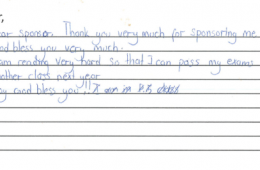 ar sponsor. Thank you very much for sponsoring me
od bless you very much.
am reading very hard so that I can pass my exams
nother class next year
ay God bless you!! I am in P.5